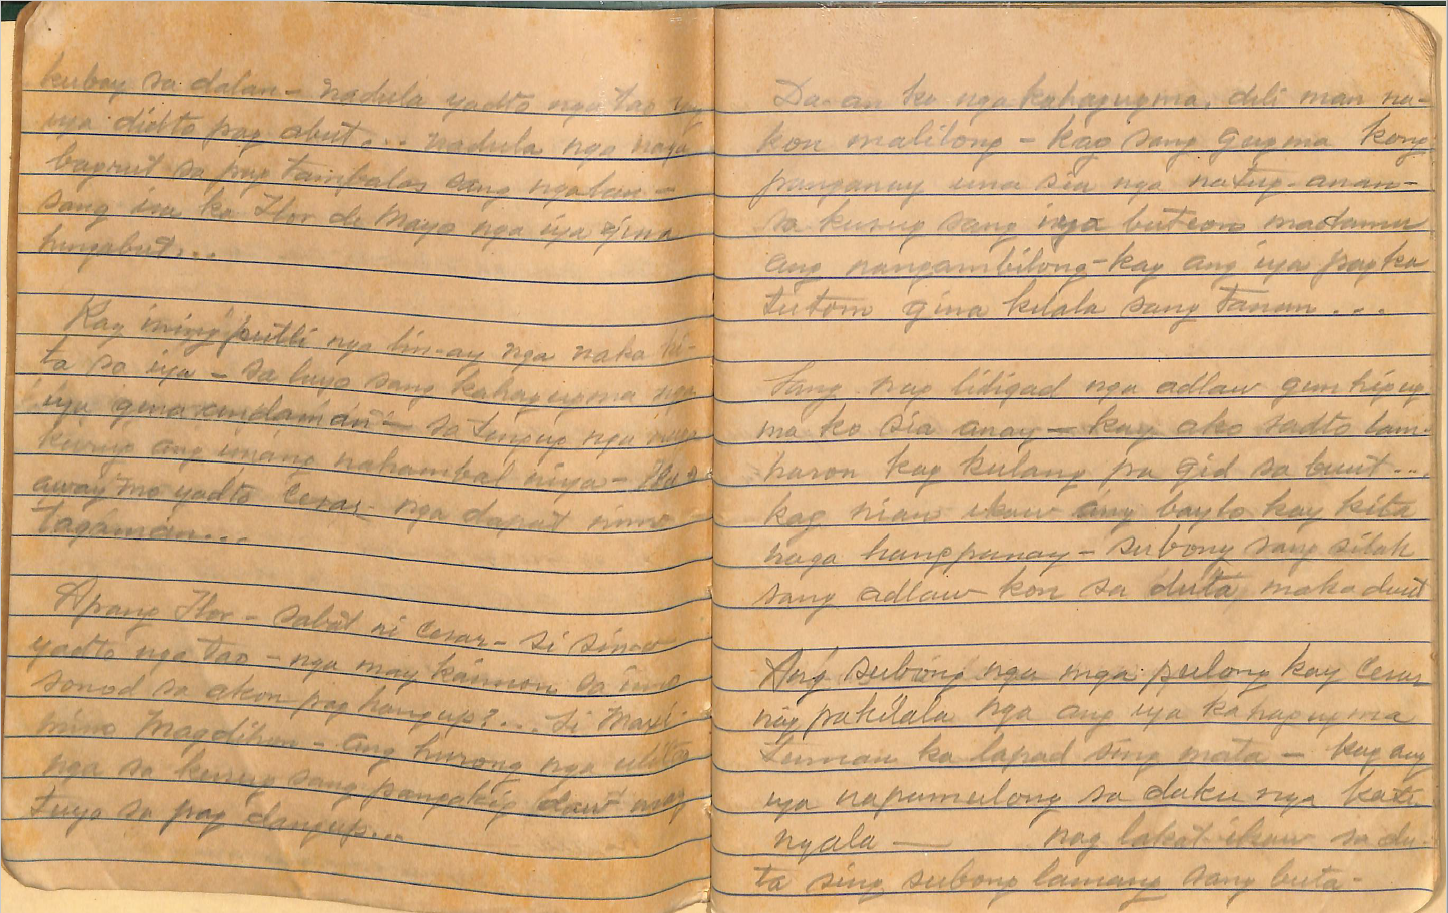 kuboy sa dalan - nadula yadto nga tao
iya didto pag abut... nadula nga naga
bagrut sa pag tambalos sang ngaban -
sang isa ka Flor de Mayo nga iya gina
hingabut...
Kay ining putli nga lin-ay nga naka ki-
ta sa iya - sa luyo sang kahagugma nga
iya gina andaman - sa tingug nga
kurug ang unang nahambal niya -
away mo yadto Cesar - nga dapat nimo
tagaman...
Apang Flor - sabat ni Cesar - si sino
yadto nga tao - nga may kainon sa imo
sonod sa akon pag hangup?... Si Maxi-
mino Magdihon - ang hurong nga ulitao
nga sa kurug sang pangakig daw
tuyo sa pag dangup...
Da-an ko nga kahagugma, dili man na-
kon malilong - kag sang gugma kong
panganay una sia nga natug-anan -
sa kusug sang iya butcon madamu
ang nangambilong - kag ang iya pagka
tutom gina kilala sang tanan...
Sang nag ligad nga adlaw gin higug
ma ko sia anay - kay ako sadto lam-
haron kag kulang pa gid sa buut...
kag nian ikaw ang baylo kay kita
naga hangpanay - subong sang silak
sang adlaw kon sa duta maka duut
Ang subong nga mga pulong kay Cesar
nag pakilala nga ang iya kahagugma
tuman ka lapad sing mata - kag ang
iya napamulong sa daku nga kati-
ngala — nag lakat ikaw sa du-
ta sing subong lamang sang buta -